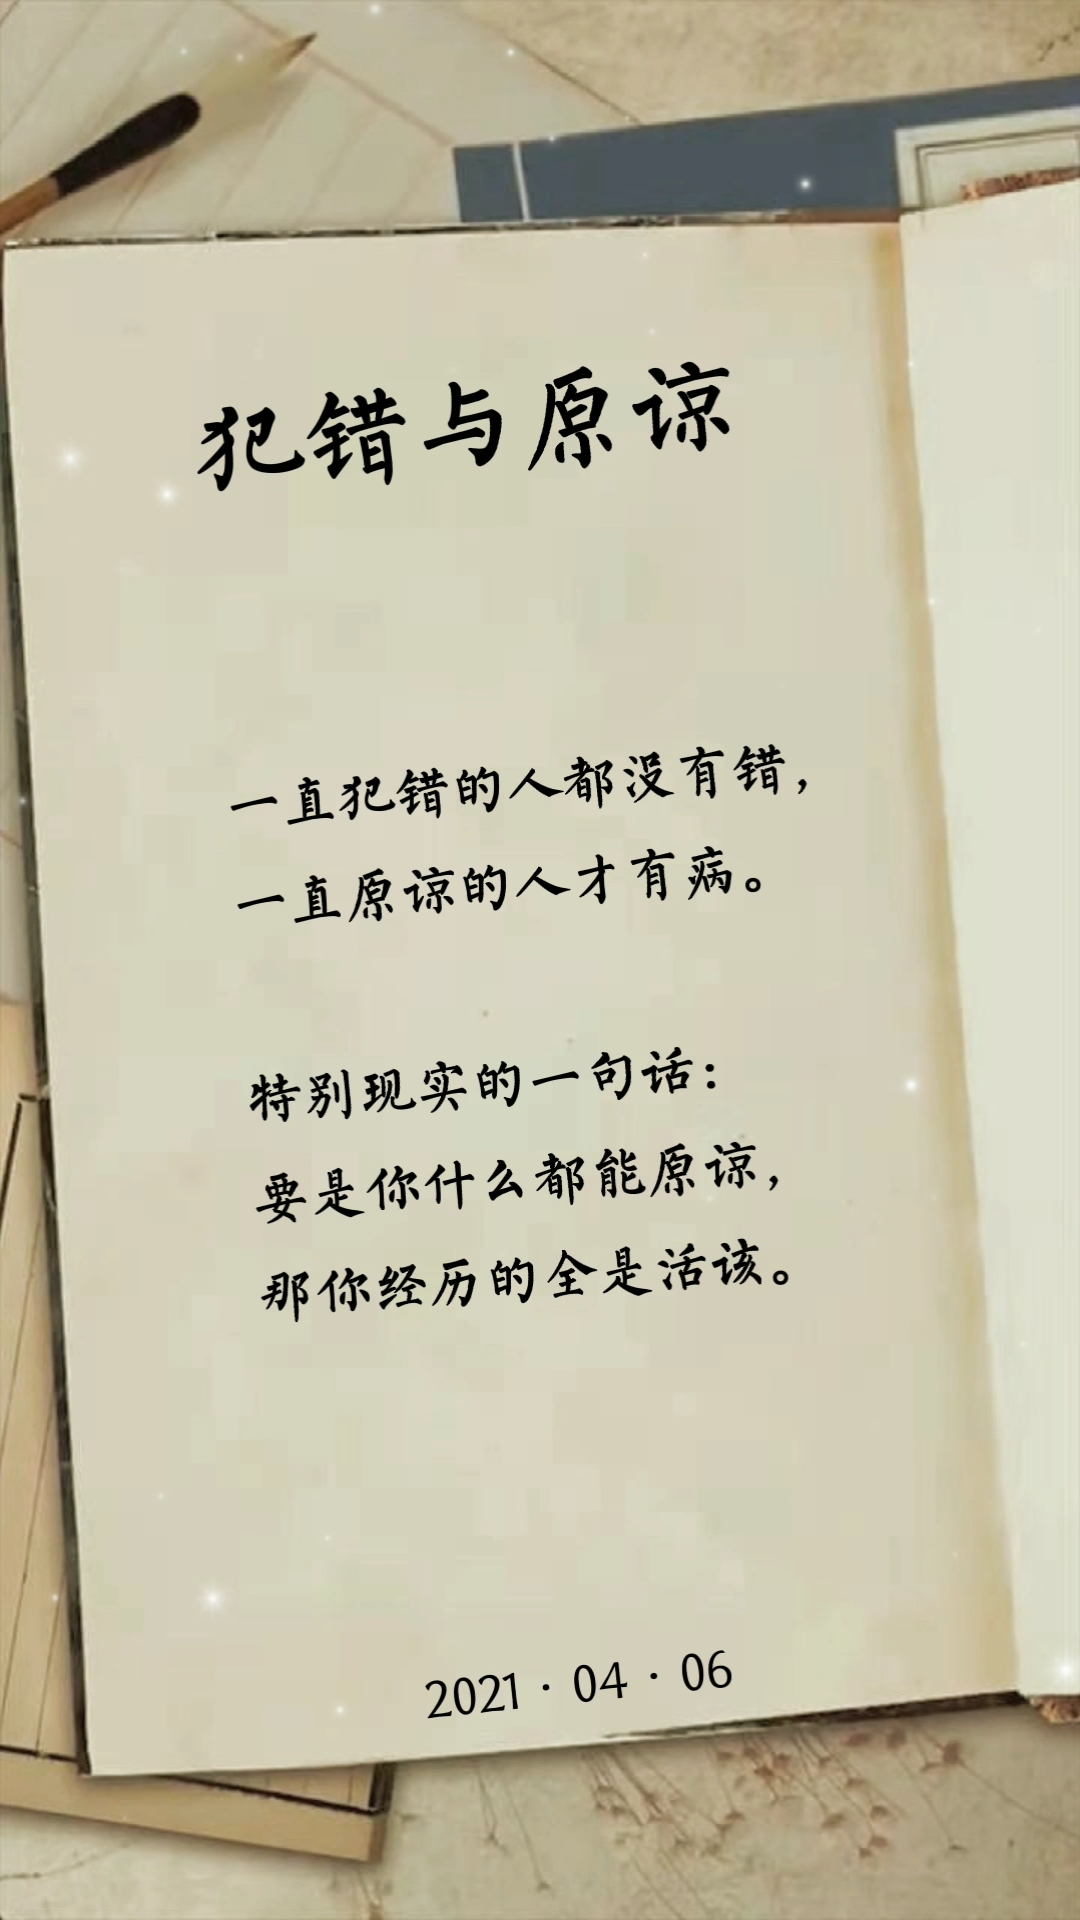 犯错与原谅
一直犯错的人都没有错，
一直原谅的人才有病。
特别现实的一句话：
要是你什么都能原谅，
那你经历的全是活该。
2021·04·06